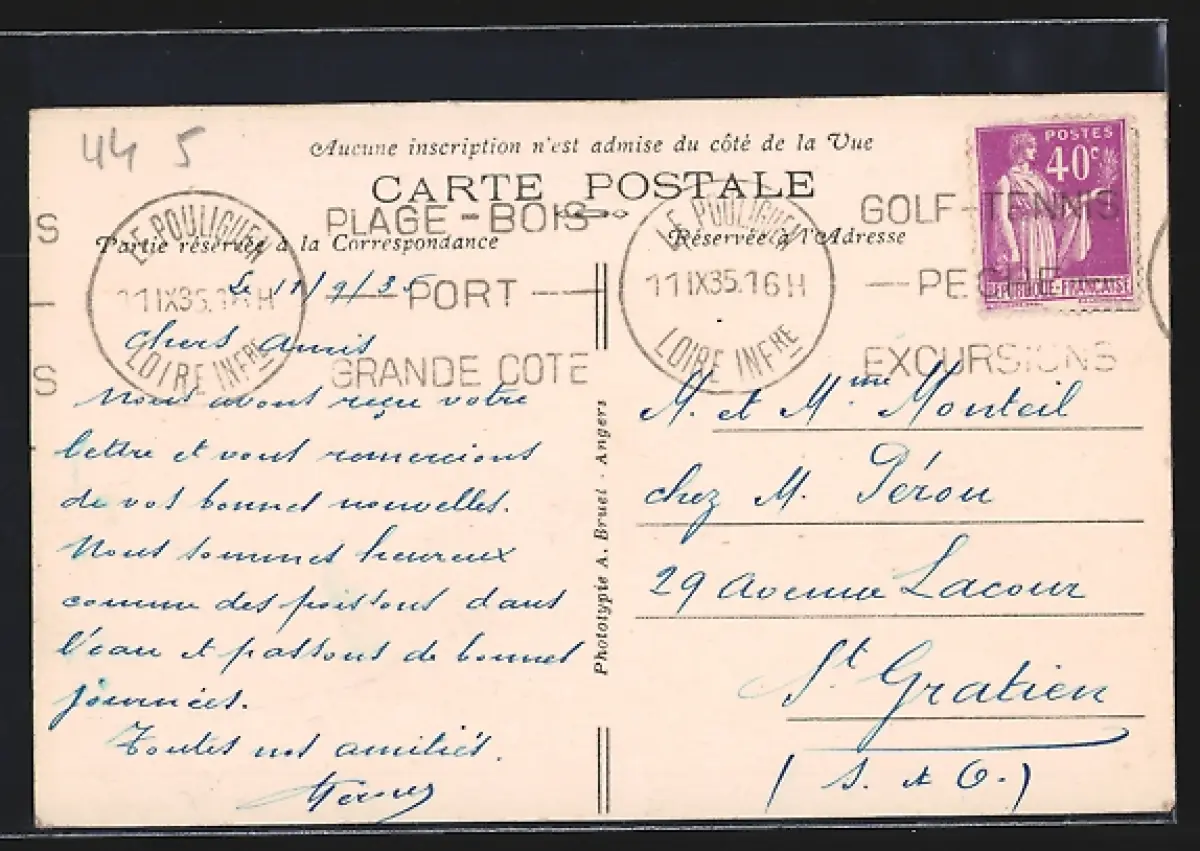 44 5
Aucune inscription n'est admise du côté de la Vue
CARTE POSTALE
Partie réservée à la Correspondance
Réservée à l'Adresse
POSTES
40c
REPUBLIQUE-FRANÇAISE
S
S
LE POULIGUEN
11 IX35.16H
LOIRE INFRE
PLAGE-BOIS
PORT
GRANDE COTE
LE POULIGUEN
11 IX35.16H
LOIRE INFRE
GOLF-TENNIS
PECHE
EXCURSIONS
Le 11/9/35
Chers Amis
Nous avons reçu votre
lettre et vous remercions
de vos bonnes nouvelles.
Nous sommes heureux
comme des poissons dans
l'eau et passons de bonnes
journées.
Toutes nos amitiés.
Photótypie A. Bruel - Angers
M. et Mme Monteil
chez M. Pérou
29 Avenue Lacour
St Gratien
(S. et O.)